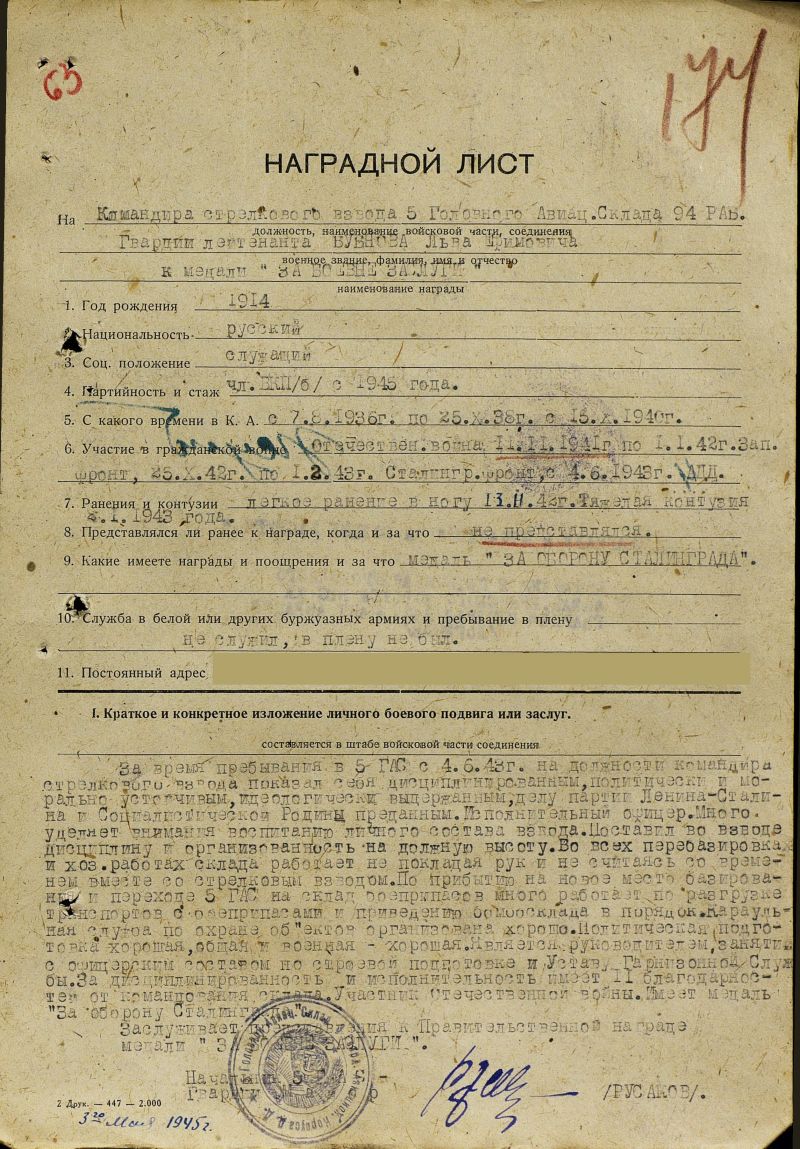 63
177
НАГРАДНОЙ ЛИСТ
На Командира стрелкового взвода 5 Головного Авиац.Склада 94 РАБ.
должность, наименование войсковой части, соединения
Гвардии лейтенанта БУБНОВА Льва
военное звание, фамилия, имя и отчество
к медали " ЗА БОЕВЫЕ ЗАСЛУГИ "
наименование награды
1. Год рождения 1914
2. Национальность русский
3. Соц. положение служащий
4. Партийность и стаж чл.ВКП/б/ с 1945 года.
5. С какого времени в К. А. с 7.8.1936г. по 25.X.38г. с 15.X.1940г.
6. Участие в гражданской войне Отечествен.война 11.11.1941г по 1.1.42г.Зап.
фронт, 25.X.42г. по 1.2.43г. Сталингр.фронт, с 4.6.1943г. АДД.
7. Ранения и контузии легкое ранение в ногу 13.11.42г.Тяжелая контузия
2.1.1943 года.
8. Представлялся ли ранее к награде, когда и за что не представлялся.
9. Какие имеете награды и поощрения и за что медаль " ЗА ОБОРОНУ СТАЛИНГРАДА".
10. Служба в белой или других буржуазных армиях и пребывание в плену
не служил, в плену не был.
11. Постоянный адрес
I. Краткое и конкретное изложение личного боевого подвига или заслуг.
составляется в штабе войсковой части соединения
За время пребывания в 5 ГАС с 4.6.43г. на должности командира
стрелкового взвода показал себя дисциплинированным,политически и мо-
рально устойчивым,идеологически выдержанным,делу партии Ленина-Стали-
на и Социалистической Родины преданным.Исполнительный офицер.Много
уделяет внимания воспитанию личного состава взвода.Поставил во взводе
дисциплину и организованность на должную высоту.Во всех перебазировка
и хоз.работах склада работает не покладая рук и не считаясь со време-
нем вместе со стрелковым взводом.По прибытию на новое место базирова-
нию и переходе 5 ГАС на склад боеприпасов много работает по разгрузке
транспортов с боеприпасами и приведению бомбосклада в порядок.Карауль-
ная служба по охране об"ектов организована хорошо.Политическая подго-
товка хорошая,общая и военная - хорошая.Является руководителем,заняти
с офицерским составом по строевой подготовке и Уставу Гарнизонной Служ
бы.За дисциплинированность и исполнительность имеет 11 благодарнос-
тей от командования склада.Участник Отечественной войны.Имеет медаль
"За оборону Сталинг
Заслуживает к Правительственной награде
медали " ЗА ЗАСЛУГИ ".
Гвардии /РУСАКОВ/.
2 Друк. — 447 — 2.000
3го Мая 1945г.